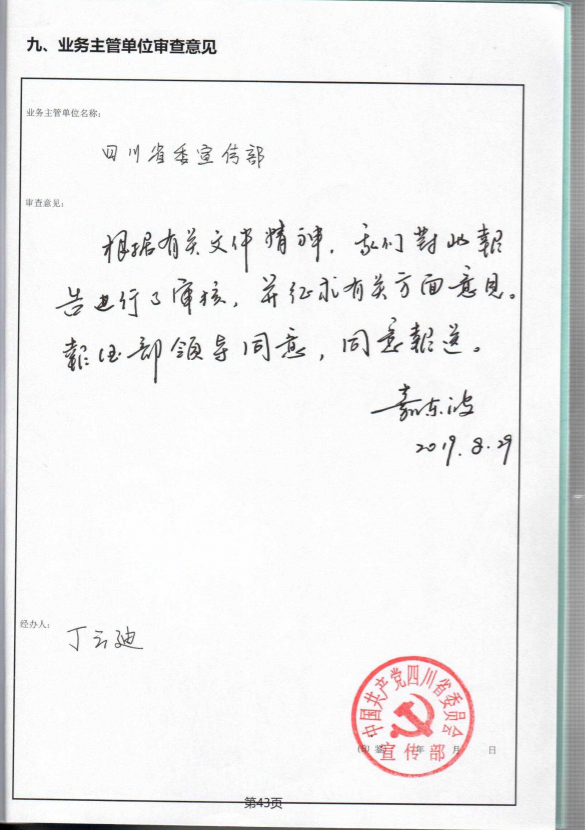 九、业务主管单位审查意见
业务主管单位名称：
四川省委宣传部
审查意见：
根据有关文件精神，我们對此報
告进行了审核，并征求有关方面意见。
報经部领导同意，同意報送。
东波
2019.8.29
经办人：
丁云迪
中国共产党四川省委员会
宣传部
(印 签) 年 月 日
第43页